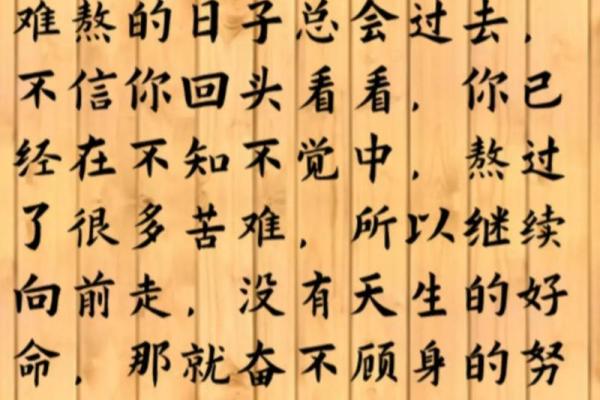 难熬的日子总会过去，
不信你回头看看，你已
经在不知不觉中，熬过
了很多苦难，所以继续
向前走，没有天生的好
命，那就奋不顾身的努